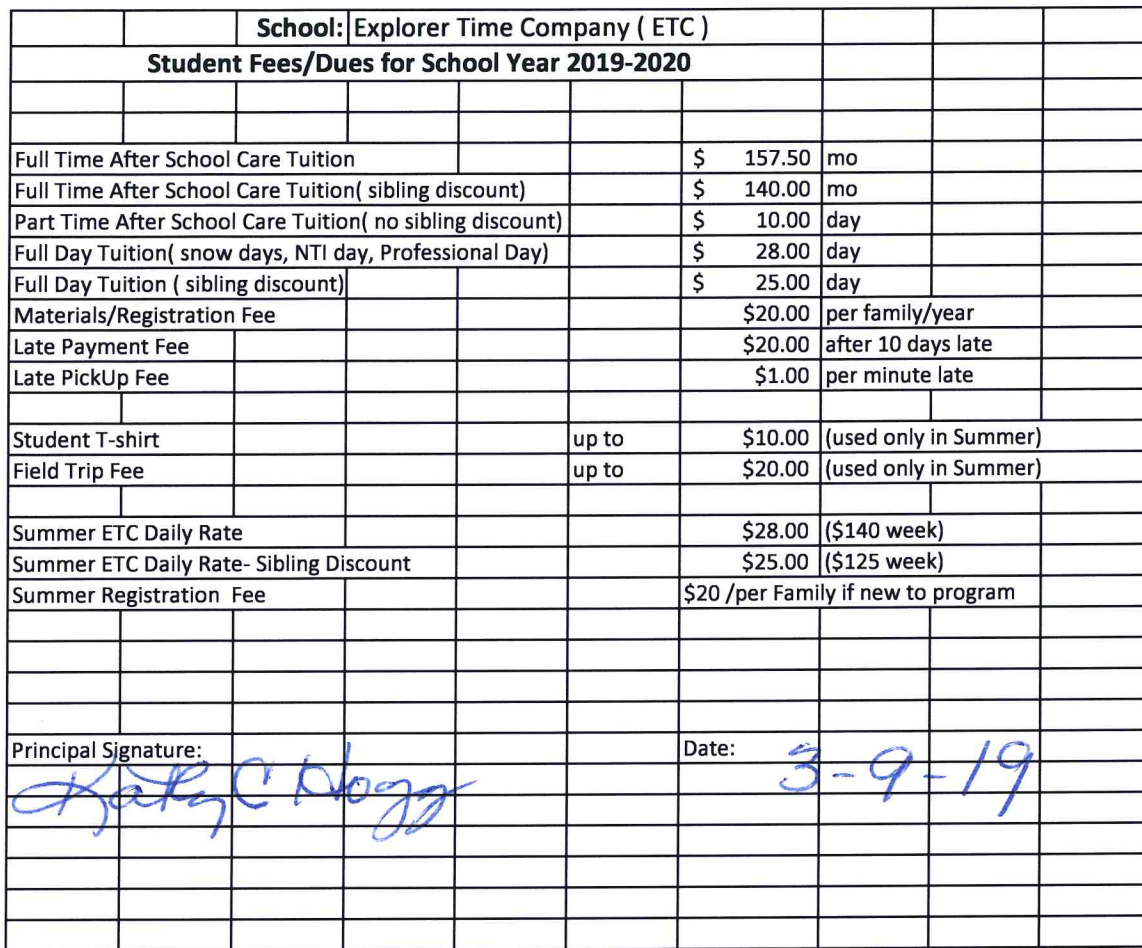 School: Explorer Time Company ( ETC )
Student Fees/Dues for School Year 2019-2020
Full Time After School Care Tuition $ 157.50 mo
Full Time After School Care Tuition( sibling discount) $ 140.00 mo
Part Time After School Care Tuition( no sibling discount) $ 10.00 day
Full Day Tuition( snow days, NTI day, Professional Day) $ 28.00 day
Full Day Tuition ( sibling discount) $ 25.00 day
Materials/Registration Fee $20.00 per family/year
Late Payment Fee $20.00 after 10 days late
Late PickUp Fee $1.00 per minute late
Student T-shirt up to $10.00 (used only in Summer)
Field Trip Fee up to $20.00 (used only in Summer)
Summer ETC Daily Rate $28.00 ($140 week)
Summer ETC Daily Rate- Sibling Discount $25.00 ($125 week)
Summer Registration Fee $20 /per Family if new to program
Principal Signature: Date:
Kathy C Hogg 3-9-19